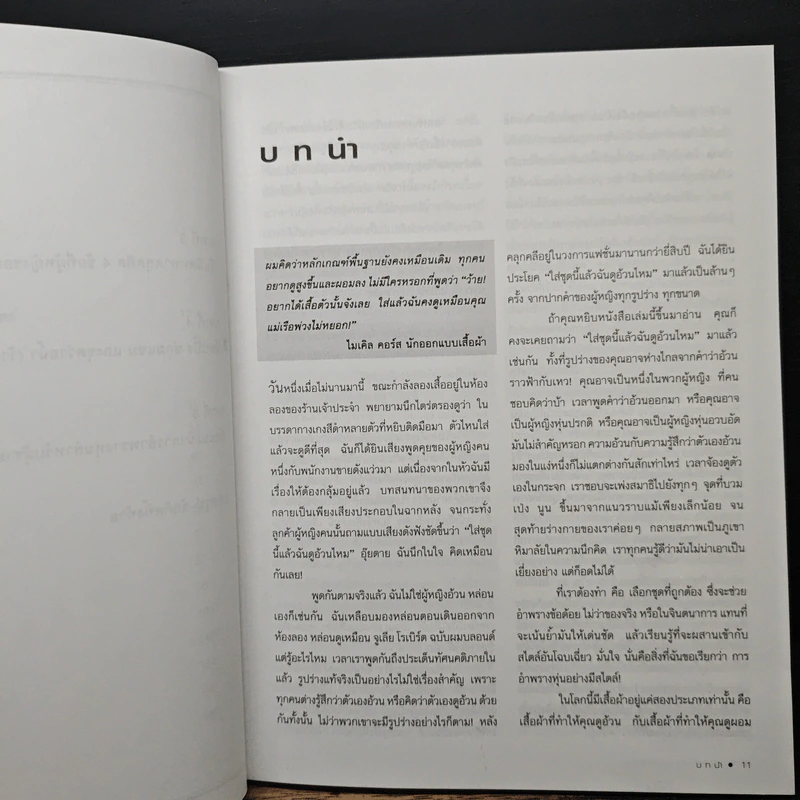 บทนำ
ผมคิดว่าหลักเกณฑ์พื้นฐานยังคงเหมือนเดิม ทุกคน
อยากดูสูงขึ้นและผอมลง ไม่มีใครหรอกที่พูดว่า “ว้าย!
อยากได้เสื้อตัวนั้นจังเลย ใส่แล้วฉันคงดูเหมือนคุณ
แม่เรือพ่วงไม่หยอก!”
ไมเคิล คอร์ส นักออกแบบเสื้อผ้า
วันหนึ่งเมื่อไม่นานมานี้ ขณะกำลังลองเสื้ออยู่ในห้อง
ลองของร้านเจ้าประจำ พยายามนึกไตร่ตรองดูว่า ใน
บรรดากางเกงสีดำหลายตัวที่หยิบติดมือมา ตัวไหนใส่
แล้วจะดูดีที่สุด ฉันก็ได้ยินเสียงพูดคุยของผู้หญิงคน
หนึ่งกับพนักงานขายดังแว่วมา แต่เนื่องจากในหัวฉันมี
เรื่องให้ต้องกลุ้มอยู่แล้ว บทสนทนาของพวกเขาจึง
กลายเป็นเพียงเสียงประกอบในฉากหลัง จนกระทั่ง
ลูกค้าผู้หญิงคนนั้นถามแบบเสียงดังฟังชัดขึ้นว่า “ใส่ชุด
นี้แล้วฉันดูอ้วนไหม” อุ๊ยตาย ฉันนึกในใจ คิดเหมือน
กันเลย!
พูดกันตามจริงแล้ว ฉันไม่ใช่ผู้หญิงอ้วน หล่อน
เองก็เช่นกัน ฉันเหลือบมองหล่อนตอนเดินออกจาก
ห้องลอง หล่อนดูเหมือน จูเลีย โรเบิร์ต ฉบับผมบลอนด์
แต่รู้อะไรไหม เวลาเราพูดกันถึงประเด็นทัศนคติภายใน
แล้ว รูปร่างแท้จริงเป็นอย่างไรไม่ใช่เรื่องสำคัญ เพราะ
ทุกคนต่างรู้สึกว่าตัวเองอ้วน หรือคิดว่าตัวเองดูอ้วน ด้วย
กันทั้งนั้น ไม่ว่าพวกเขาจะมีรูปร่างอย่างไรก็ตาม! หลัง
คลุกคลีอยู่ในวงการแฟชั่นมานานกว่ายี่สิบปี ฉันได้ยิน
ประโยค “ใส่ชุดนี้แล้วฉันดูอ้วนไหม” มาแล้วเป็นล้านๆ
ครั้ง จากปากคำของผู้หญิงทุกรูปร่าง ทุกขนาด
ถ้าคุณหยิบหนังสือเล่มนี้ขึ้นมาอ่าน คุณก็
คงจะเคยถามว่า “ใส่ชุดนี้แล้วฉันดูอ้วนไหม” มาแล้ว
เช่นกัน ทั้งที่รูปร่างของคุณอาจห่างไกลจากคำว่าอ้วน
ราวฟ้ากับเหว! คุณอาจเป็นหนึ่งในพวกผู้หญิง ที่คน
ชอบคิดว่าบ้า เวลาพูดคำว่าอ้วนออกมา หรือคุณอาจ
เป็นผู้หญิงหุ่นปรกติ หรือคุณอาจเป็นผู้หญิงหุ่นอวบอัด
มันไม่สำคัญหรอก ความอ้วนกับความรู้สึกว่าตัวเองอ้วน
มองในแง่หนึ่งก็ไม่แตกต่างกันสักเท่าไหร่ เวลาจ้องดูตัว
เองในกระจก เราชอบจะเพ่งสมาธิไปยังทุกๆ จุดที่บวม
เป่ง นูน ขึ้นมาจากแนวราบแม้เพียงเล็กน้อย จน
สุดท้ายร่างกายของเราค่อยๆ กลายสภาพเป็นภูเขา
หิมาลัยในความนึกคิด เราทุกคนรู้ดีว่ามันไม่น่าเอาเป็น
เยี่ยงอย่าง แต่ก็อดไม่ได้
ที่เราต้องทำ คือ เลือกชุดที่ถูกต้อง ซึ่งจะช่วย
อำพรางข้อด้อย ไม่ว่าของจริง หรือในจินตนาการ แทนที่
จะเน้นย้ำมันให้เด่นชัด แล้วเรียนรู้ที่จะผสานเข้ากับ
สไตล์อันโฉบเฉี่ยว มั่นใจ นั่นคือสิ่งที่ฉันขอเรียกว่า การ
อำพรางหุ่นอย่างมีสไตล์!
ในโลกนี้มีเสื้อผ้าอยู่แค่สองประเภทเท่านั้น คือ
เสื้อผ้าที่ทำให้คุณดูอ้วน กับเสื้อผ้าที่ทำให้คุณดูผอม
บทนำ • 11